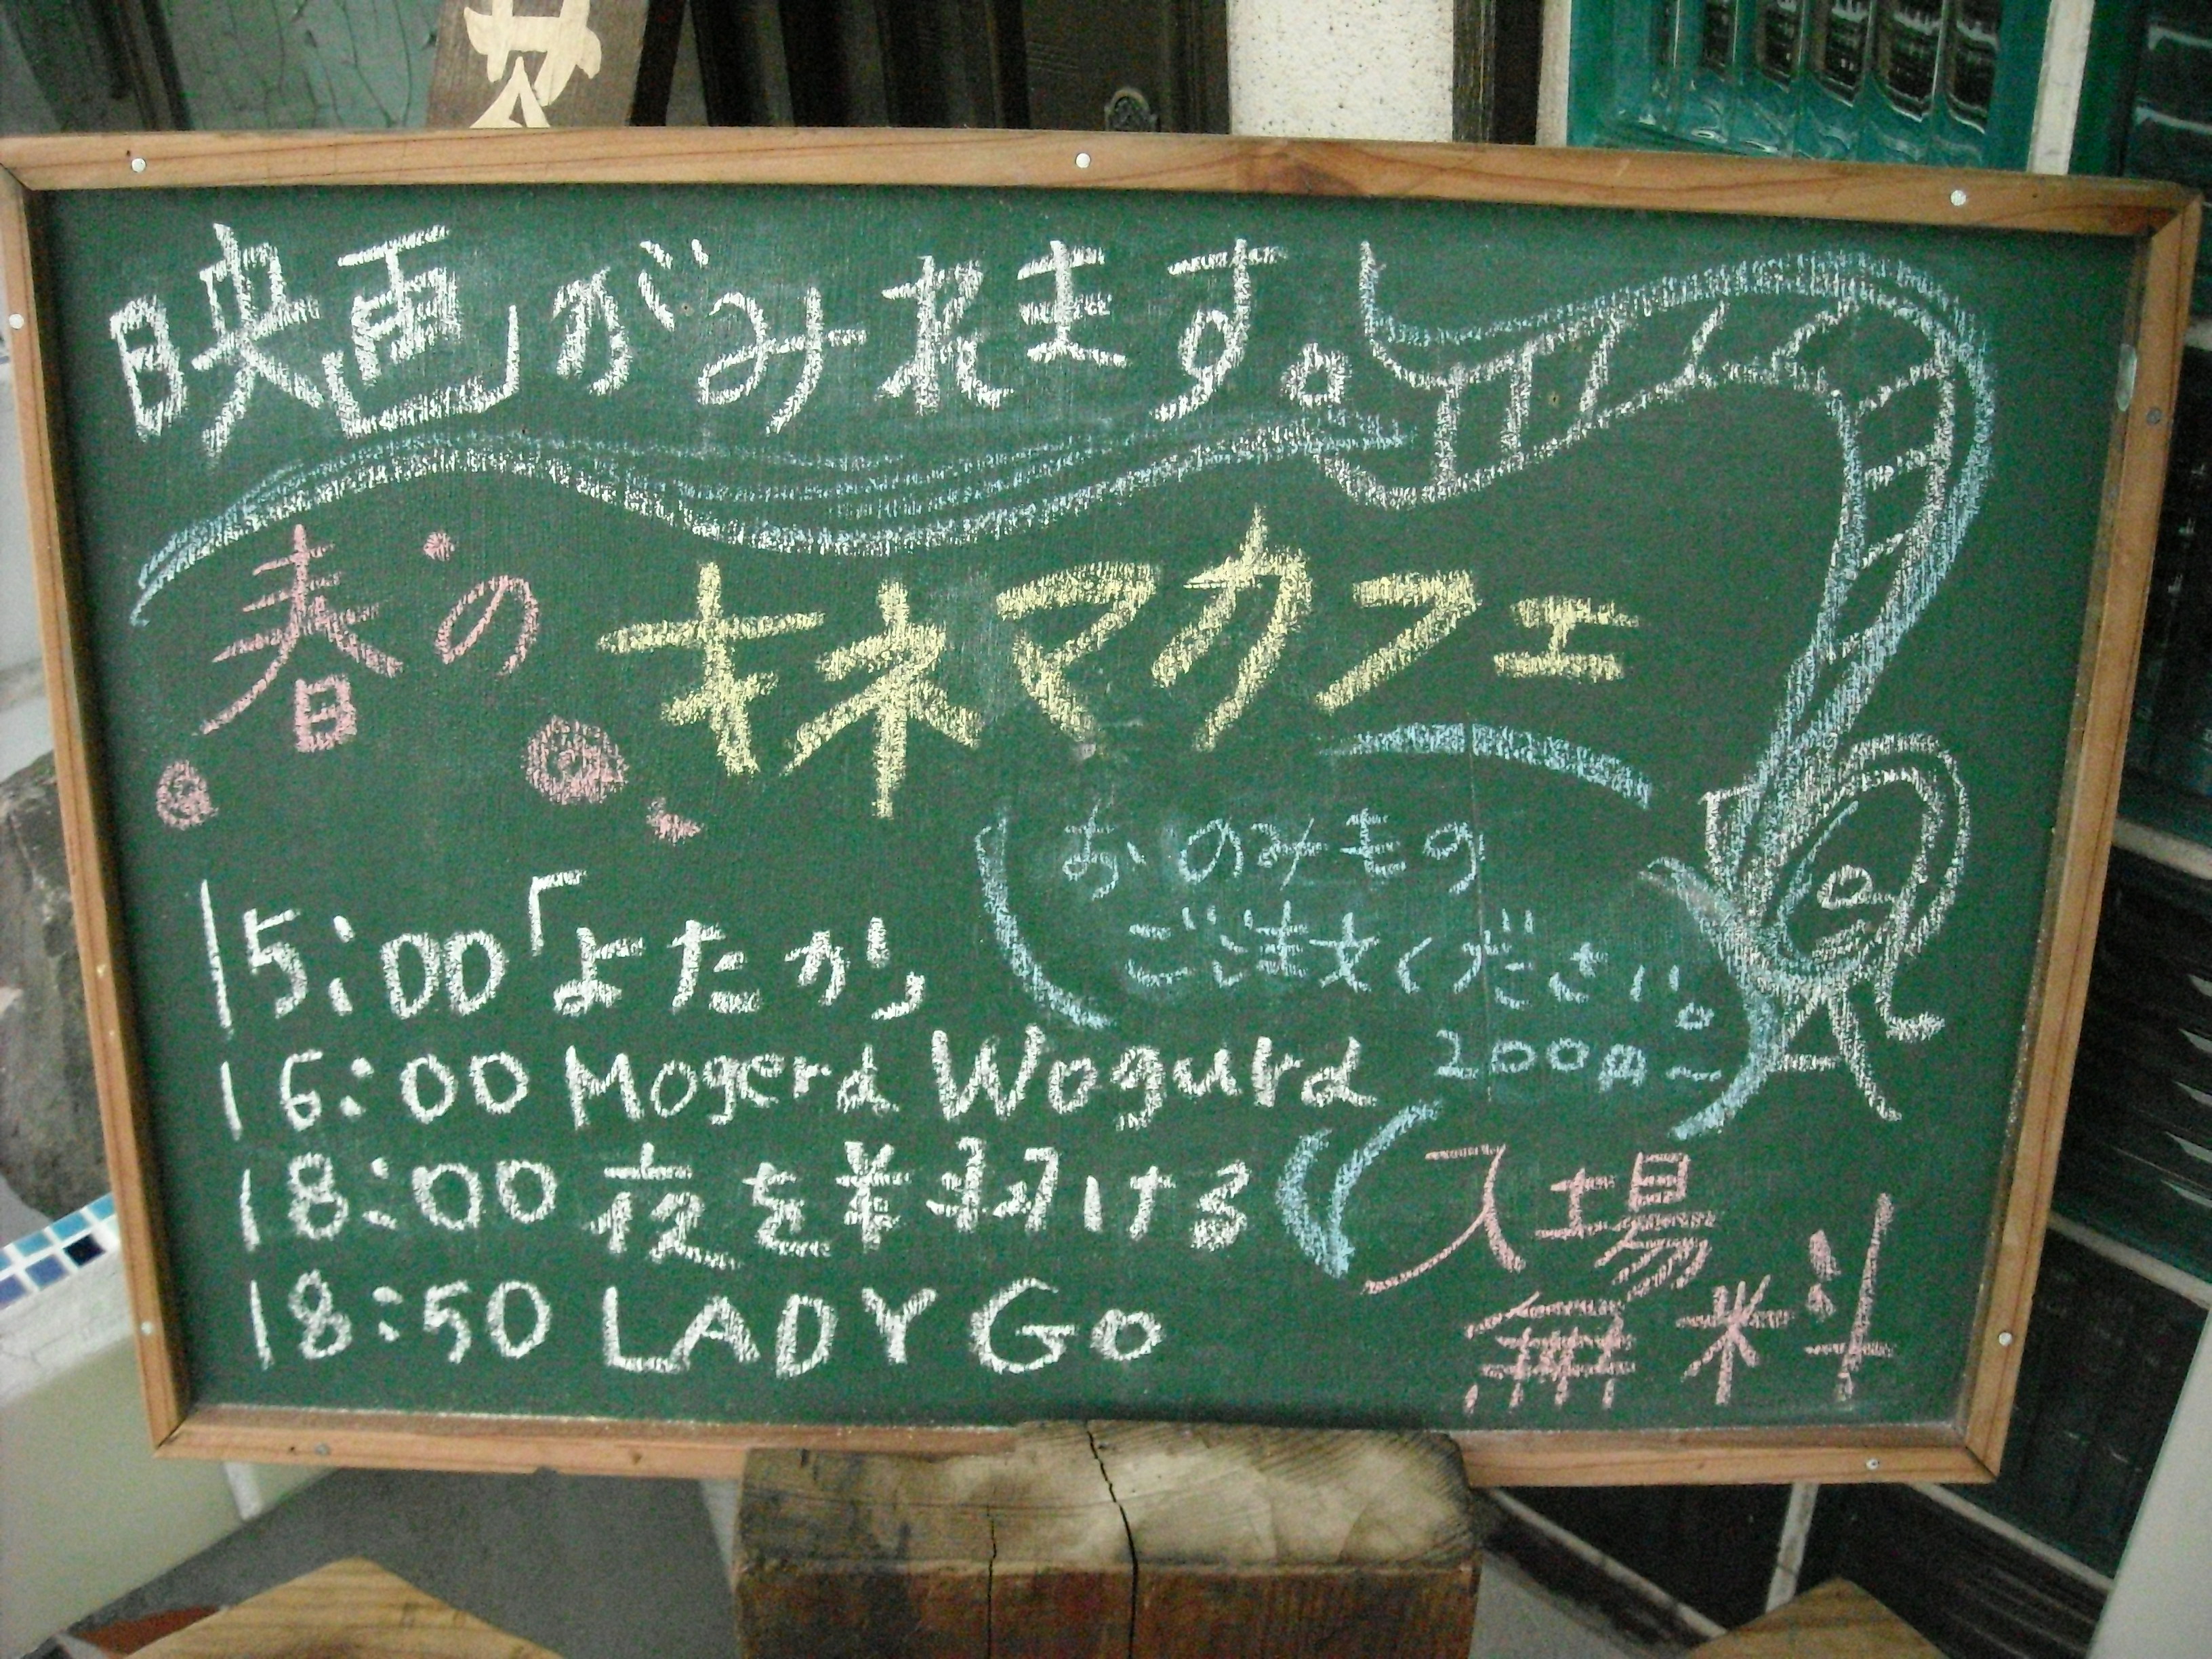 映画がみれます。
春の
キネマカフェ
おのみもの
ご注文ください。
200円〜
15:00「よたか」
16:00 Mogera Wogura
18:00 夜を翔ける
18:50 LADY GO
入場
無料